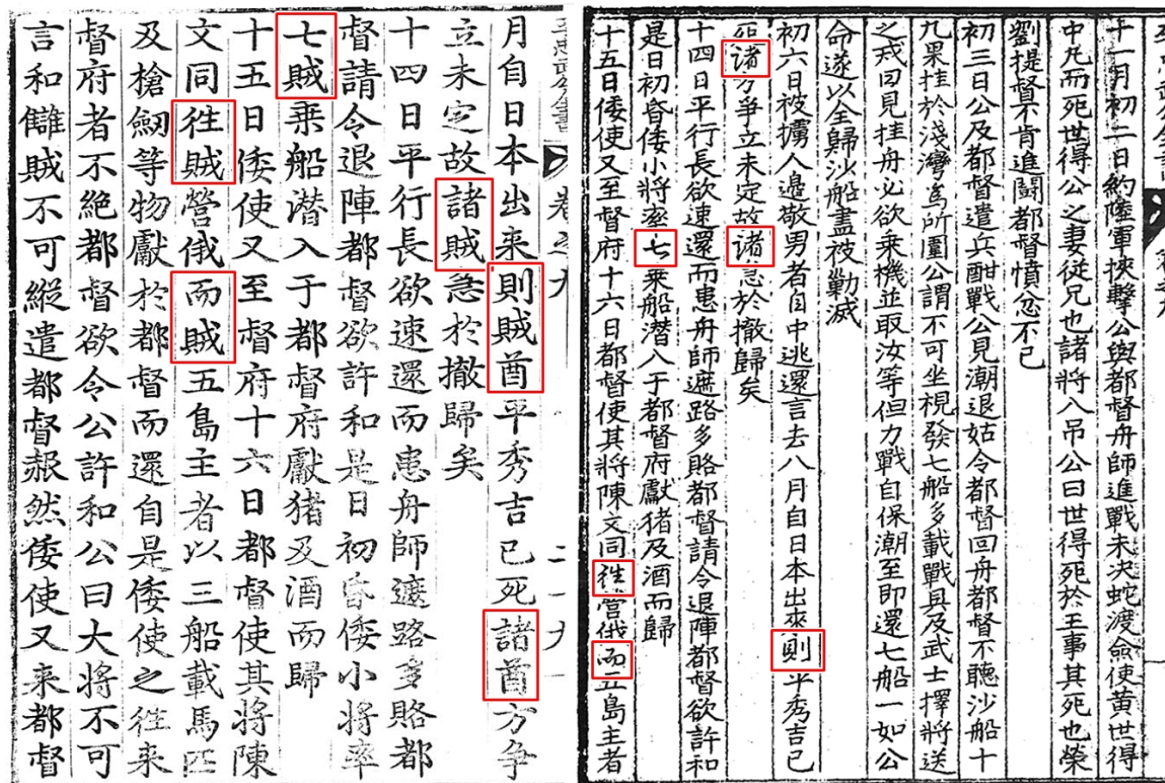 月自日本出来則賊酋平秀吉已死諸酋方爭
立未定故諸賊急於撤歸矣
十四日平行長欲速還而患舟師遮路多賂都
督請令退陣都督欲許和是日初昏倭小將率
七賊乗船潜入于都督府獻猪及酒而歸
十五日倭使又至督府十六日都督使其將陳
文同徃賊營俄而賊五島主者以三船載馬匹
及槍釰等物獻於都督而還自是倭使之徃来
督府者不絶都督欲令公許和公曰大將不可
言和讎賊不可縱遣都督赧然倭使又来都督
十一月初二日約陸軍挾擊公與都督舟師進戰未決蛇渡僉使黄世得
中丸而死世得公之妻從兄也諸將入吊公曰世得死於王事其死也榮
劉提督不肯進鬪都督憤忿不已
初三日公及都督遣兵酣戰公見潮退姑令都督回舟都督不聽沙船十
九果挂於淺灣為所圍公謂不可坐視發七船多載戰具及武士擇將送
之戒曰見挂舟必欲乗機並取汝等但力戰自保潮至即還七船一如公
命遂以全歸沙船盡被勦滅
初六日被擄人邊敬男者自中逃還言去八月自日本出来則平秀吉已
死諸方爭立未定故諸急於撤歸矣
十四日平行長欲速還而患舟師遮路多賂都督請令退陣都督欲許和
是日初昏倭小將率七乗船潜入于都督府獻猪及酒而歸
十五日倭使又至督府十六日都督使其將陳文同徃營俄而五島主者